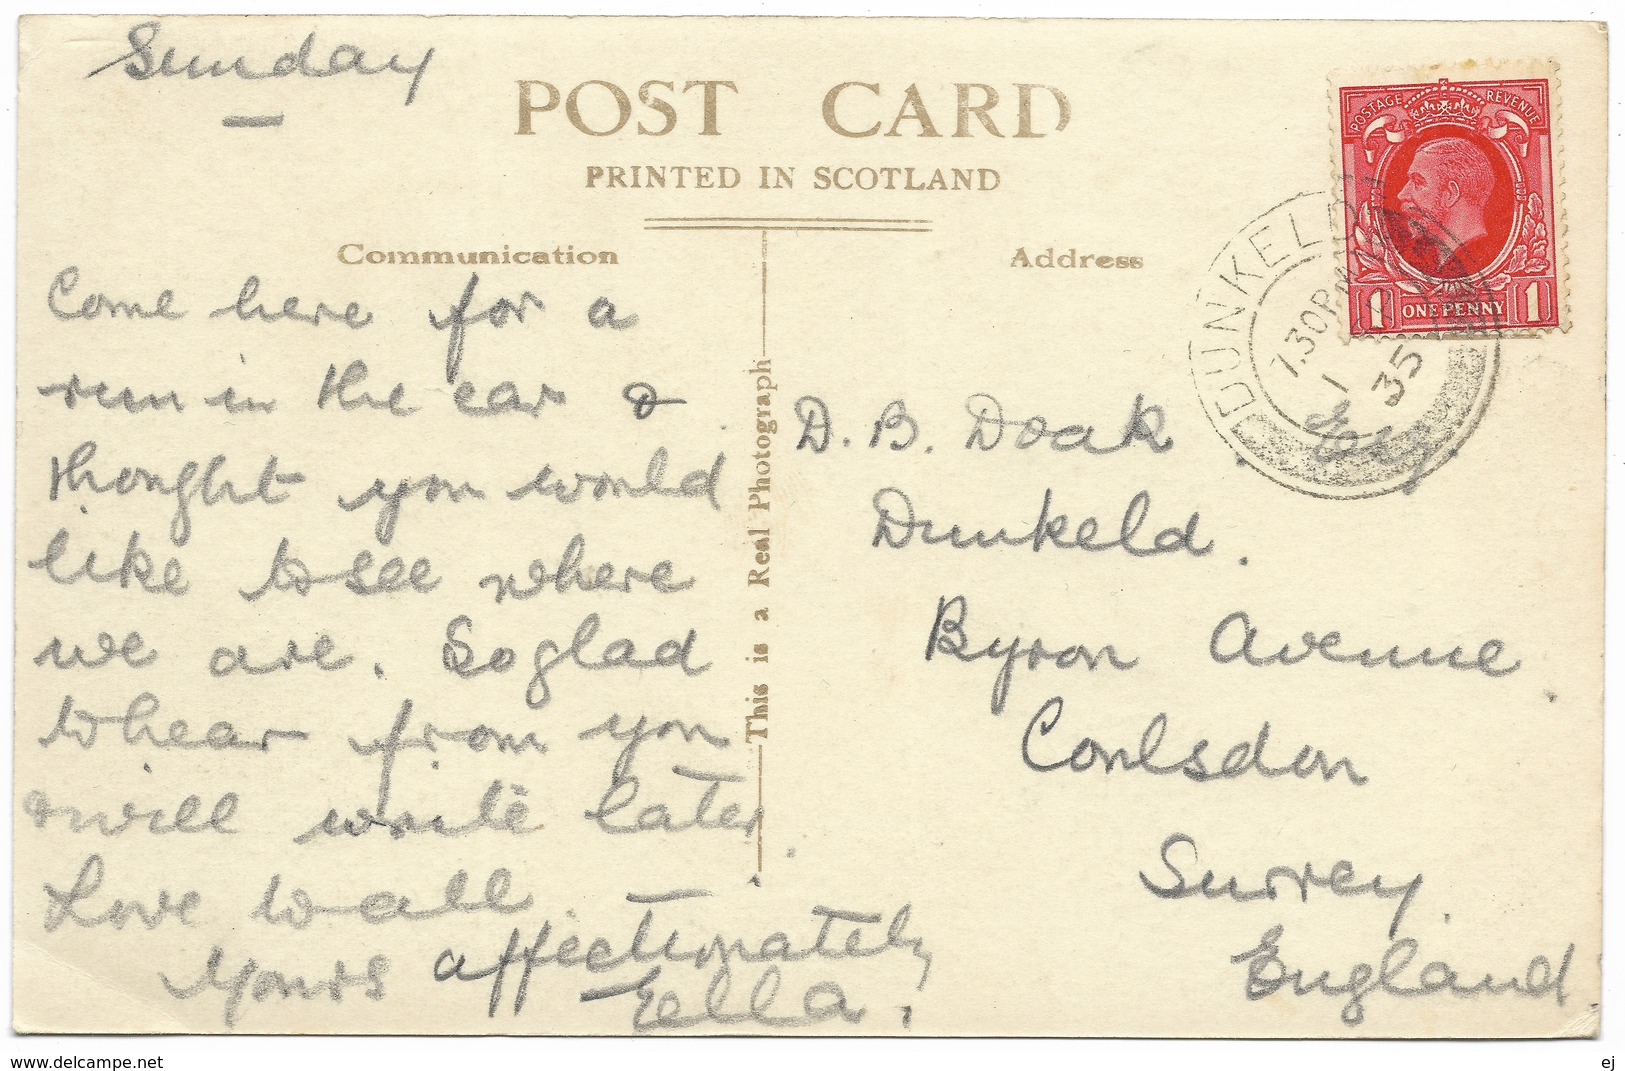 Sunday
POST CARD
PRINTED IN SCOTLAND
Communication
Come here for a
run in the car &
thought you would
like to see where
we are. So glad
to hear from you
& will write later.
Love to all.
Yours affectionately
Ella.
This is a Real Photograph
Address
D. B. Doak, Esq.
Dunkeld.
Byron Avenue.
Coulsdon
Surrey.
England.
POSTAGE REVENUE
1 ONE PENNY 1
DUNKELD
7.30PM
1
35
delcampe.net
ej